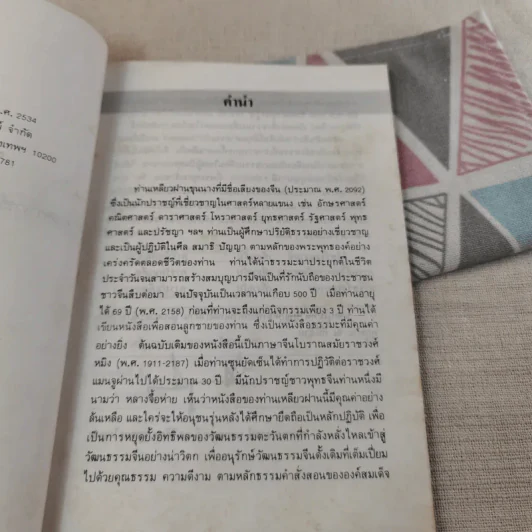 พ.ศ. 2534
จำกัด
เทพฯ 10200
781
คำนำ
ท่านเหลียวฝานขุนนางที่มีชื่อเสียงของจีน (ประมาณ พ.ศ. 2092)
ซึ่งเป็นนักปราชญ์ที่เชี่ยวชาญในศาสตร์หลายแขนง เช่น อักษรศาสตร์
คณิตศาสตร์ ดาราศาสตร์ โหราศาสตร์ ยุทธศาสตร์ รัฐศาสตร์ พุทธ
ศาสตร์ และปรัชญา ฯลฯ ท่านเป็นผู้ศึกษาปริยัติธรรมอย่างเชี่ยวชาญ
และเป็นผู้ปฏิบัติในศีล สมาธิ ปัญญา ตามหลักของพระพุทธองค์อย่าง
เคร่งครัดตลอดชีวิตของท่าน ท่านได้นำธรรมะมาประยุกต์ในชีวิต
ประจำวันจนสามารถสร้างสมบุญบารมีจนเป็นที่รักนับถือของประชาชน
ชาวจีนสืบต่อมา จนปัจจุบันเป็นเวลานานเกือบ 500 ปี เมื่อท่านอายุ
ได้ 69 ปี (พ.ศ. 2158) ก่อนที่ท่านจะถึงแก่อนิจกรรมเพียง 3 ปี ท่านได้
เขียนหนังสือเพื่อสอนลูกชายของท่าน ซึ่งเป็นหนังสือธรรมะที่มีคุณค่า
อย่างยิ่ง ต้นฉบับเดิมของหนังสือนี้เป็นภาษาจีนโบราณสมัยราชวงศ์
หมิง (พ.ศ. 1911-2187) เมื่อท่านซุนยัดเซ็นได้ทำการปฏิวัติต่อราชวงศ์
แมนจูผ่านไปได้ประมาณ 30 ปี มีนักปราชญ์ชาวพุทธจีนท่านหนึ่งมี
นามว่า หลางจื้อห่าย เห็นว่าหนังสือของท่านเหลียวฝานนี้มีคุณค่าอย่าง
ล้นเหลือ และใคร่จะให้อนุชนรุ่นหลังได้ศึกษายึดถือเป็นหลักปฏิบัติ เพื่อ
เป็นการหยุดยั้งอิทธิพลของวัฒนธรรมตะวันตกที่กำลังหลั่งไหลเข้าสู่
วัฒนธรรมจีนอย่างน่าวิตก เพื่ออนุรักษ์วัฒนธรรมจีนดั้งเดิมที่เต็มเปี่ยม
ไปด้วยคุณธรรม ความดีงาม ตามหลักธรรมคำสั่งสอนขององค์สมเด็จ